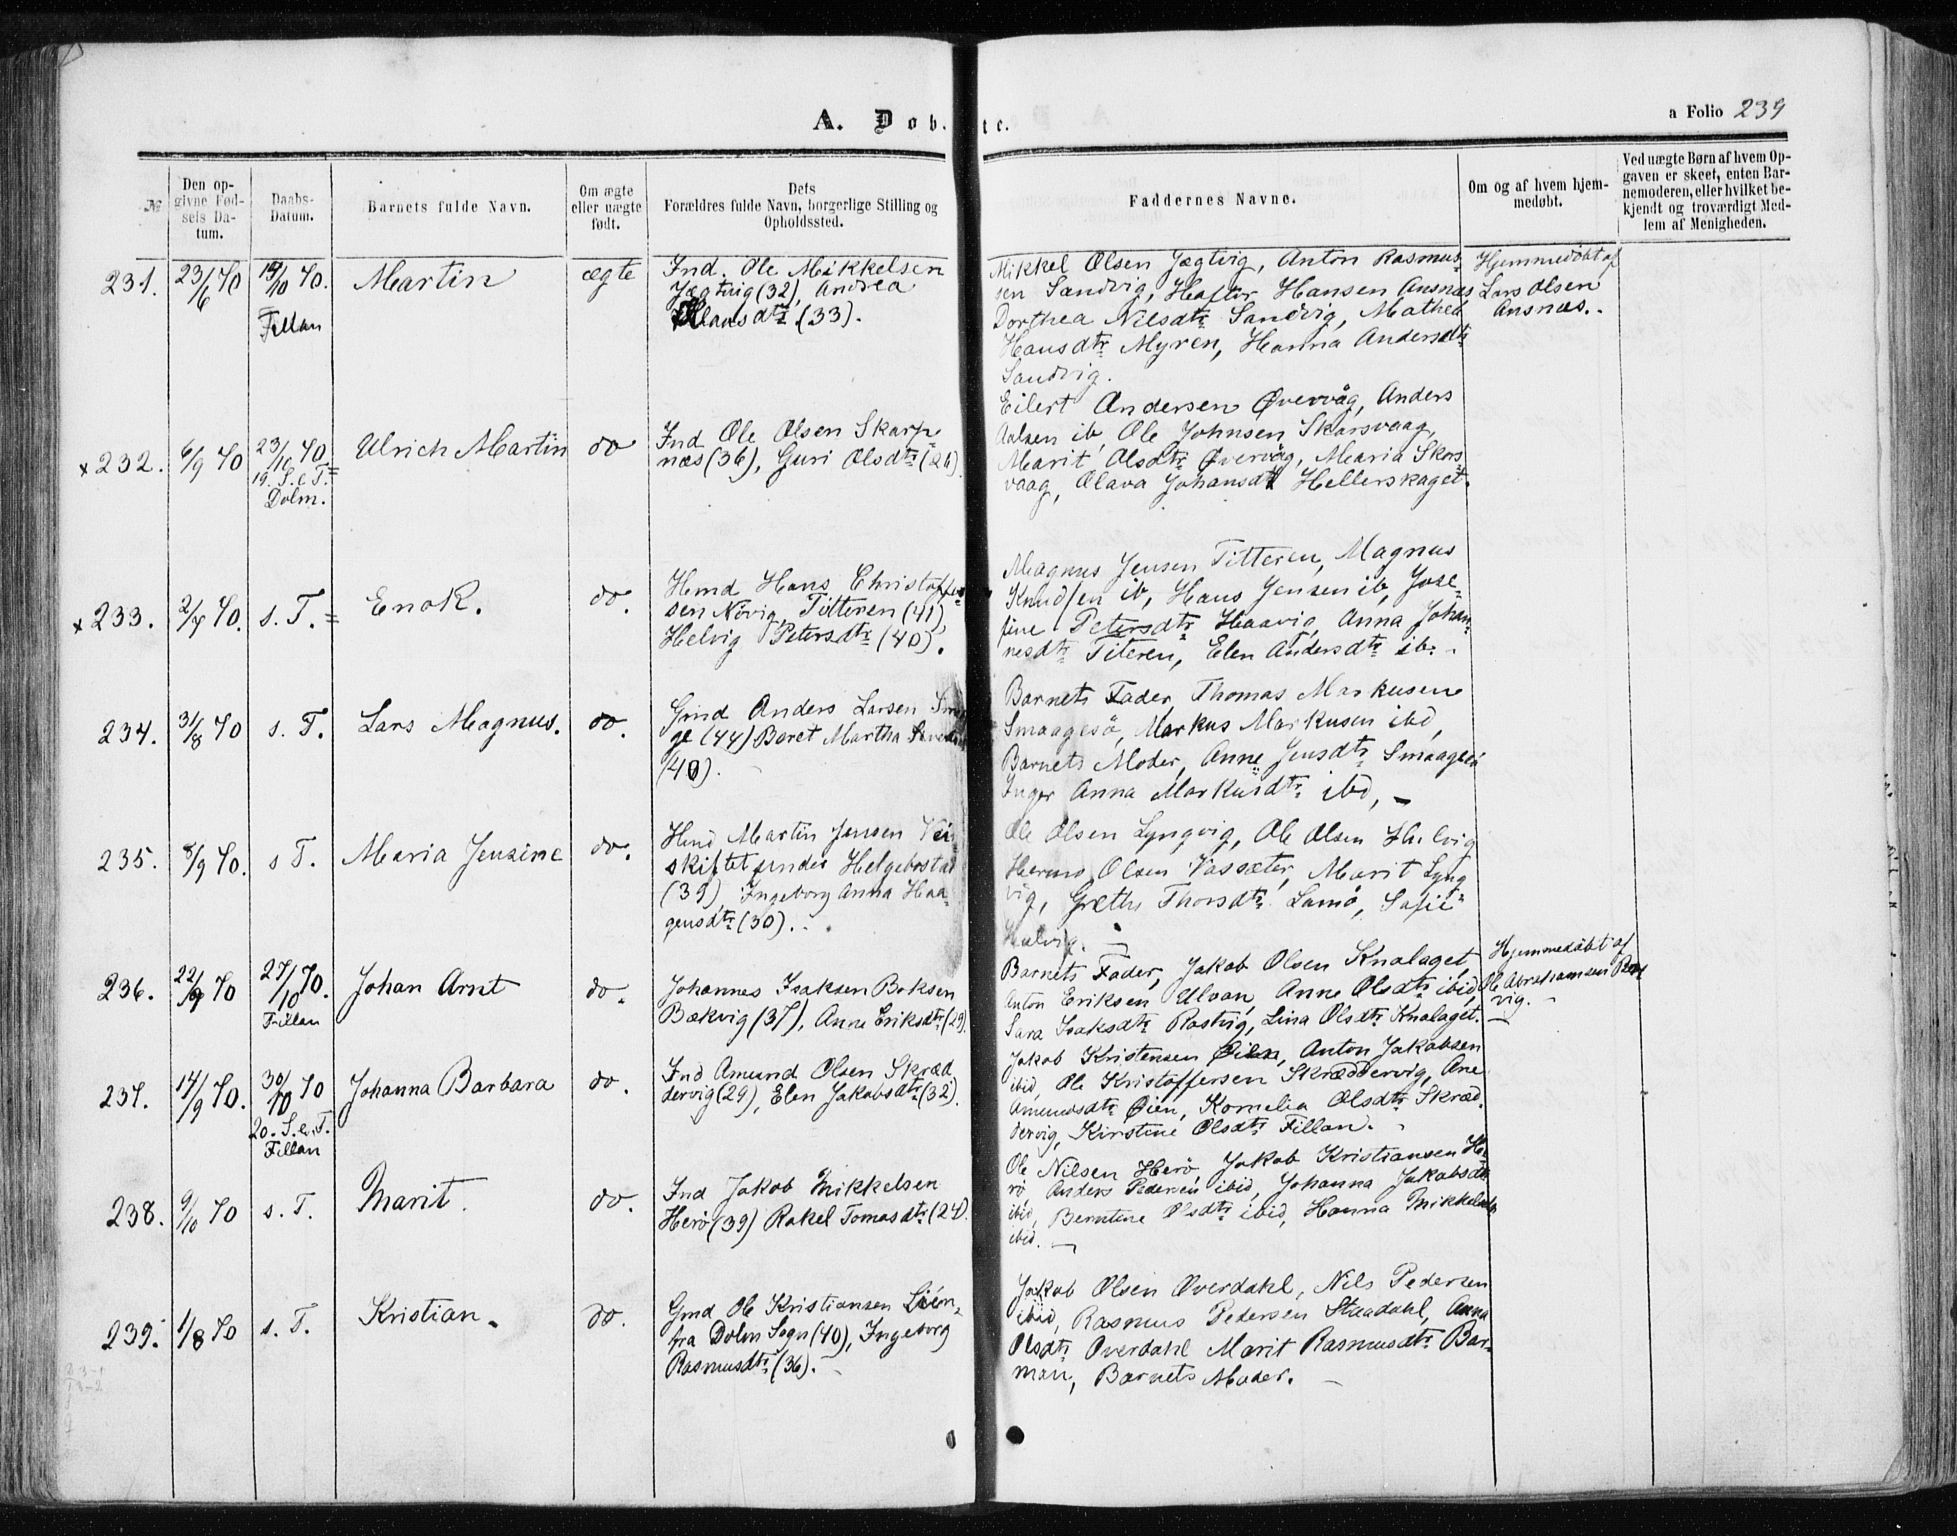 A. Døb. tc.
a Folio 239
№
Den op-
givne Fød-
sels Da-
tum.
Daabs-
Datum.
Barnets fulde Navn.
Om ægte
eller uægte
født.
Dets
Forældres fulde Navn, borgerlige Stilling og
Opholdssted.
Faddernes Navne.
Om og af hvem hjem-
medøbt.
Ved uægte Børn af hvem Op-
gaven er skeet, enten Bar-
nemoderen, eller hvilket be-
kjendt og troværdigt Med-
lem af Menigheden.
231.
23/6 70
/10 70.
Fillan
Martin
ægte
Ind. Ole Mikkelsen
Jægtvig (32), Andrea
Klausdtr (33).
Mikkel Olsen Jægtvig, Anton Rasmus-
sen Sandvig, Haftor Hansen Ansnæs
Dorthea Nilsdtr Sandvig, Mathea
Hansdtr Myren, Hanna Andersdtr
Sandvig.
Hjemmedøbt af
Lars Olsen
Ansnæs.
x 232.
6/9 70
23/10 70
19. S. e. T. =
Dolm.
Ulrich Martin
do
Ind Ole Olsen Skarp-
næs (36), Guri Olsdtr (26)
Eilert Andersen Øvervåg, Anders
ib, Ole Johnsen Skarsvaag,
Marit Olsdtr Øvervåg, Maria Skars-
vaag, Olava Johansdt Hellerskaget.
x 233.
2/7 70.
s. T. =
Enok.
do.
Hmd Hans Christoffer-
sen Nørvig Titteren (41),
Helvig Petersdtr (40).
Magnus Jensen Titteren, Magnus
Knudsen ib, Hans Jensen ib, Jose-
fine Petersdtr Haavig, Anna Johan-
nesdtr Titeren, Elen Andersdtr ib.
234.
31/8 70
s. T.
Lars Magnus.
do.
Gmd Anders Larsen
ge (44) Beret Martha
(40).
Barnets Fader, Thomas Markusen
Smaagesø, Markus Markusen ibd,
Barnets Moder, Anne Jensdtr Smaagesø
Inger Anna Markusdtr ibd,
235.
8/9 70.
s T.
Maria Jensine
do.
Hmd Martin Jensen
skiftet under Helgebostad
(39), Ingeborg Anna Haa-
gensdtr (30).
Ole Olsen Lyngvig, Ole Olsen Hælvig
Olsen Vassæter, Marit Lyng-
vig, Grethe Thorsdtr Lamø, Sofie
Hælvig.
236.
22/9 70
27/10 70.
Fillan
Johan Arnt
do.
Johannes Isaksen Boksen
Bækvig (37), Anne Eriksdtr (29).
Barnets Fader, Jakob Olsen Knalaget,
Anton Eriksen Ulvan, Anne Olsdtr ibid,
Sara Isaksdtr Rastvig, Lina Olsdtr Knalaget.
Hjemmedøbt af
Ole Abrahamsen
vig.
237.
14/9 70.
30/10 70
20. S. e. T.
Fillan
Johanna Barbara
do.
Ind Amund Olsen Skræd
dervig (29), Elen Jakobsdtr (32).
Jakob Kristensen Øien, Anton Jakobsen
ibid, Ole Kristoffersen Skræddervig, Ane
Amundsdtr Øien, Kornelia Olsdtr Skræd-
dervig, Kirstine Olsdtr Fillan.
238.
9/10 70
s. T.
Marit.
do.
Ind Jakob Mikkelsen
Herø (39) Rakel Tomasdtr (24).
Ole Nilsen Herø, Jakob Kristiansen He-
rø, Anders Pedersen ibid, Johanna Jakobsdtr
ibid, Berntine Olsdtr ibid, Hanna Mikkelsdtr
ibid.
239.
1/8 70
s. T.
Kristian.
do.
Gmd Ole Kristiansen
fra Dolm Sogn (40), Ingeborg
Rasmusdtr (36).
Jakob Olsen Overdahl, Nils Pedersen
ibid, Rasmus Pedersen Staadahl, Anna
Olsdtr Overdahl Marit Rasmusdtr Bar-
man, Barnets Moder.